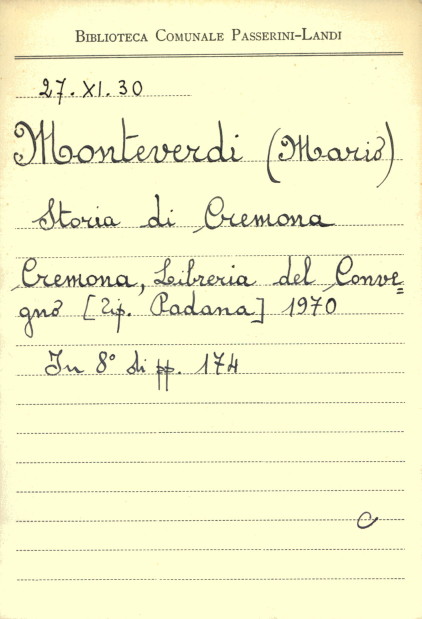 BIBLIOTECA COMUNALE PASSERINI-LANDI
27.XI.30
Monteverdi (Mario)
Storia di Cremona
Cremona, Libreria del Conve=
gno [Tip. Padana] 1970
In 8° di pp. 174
C